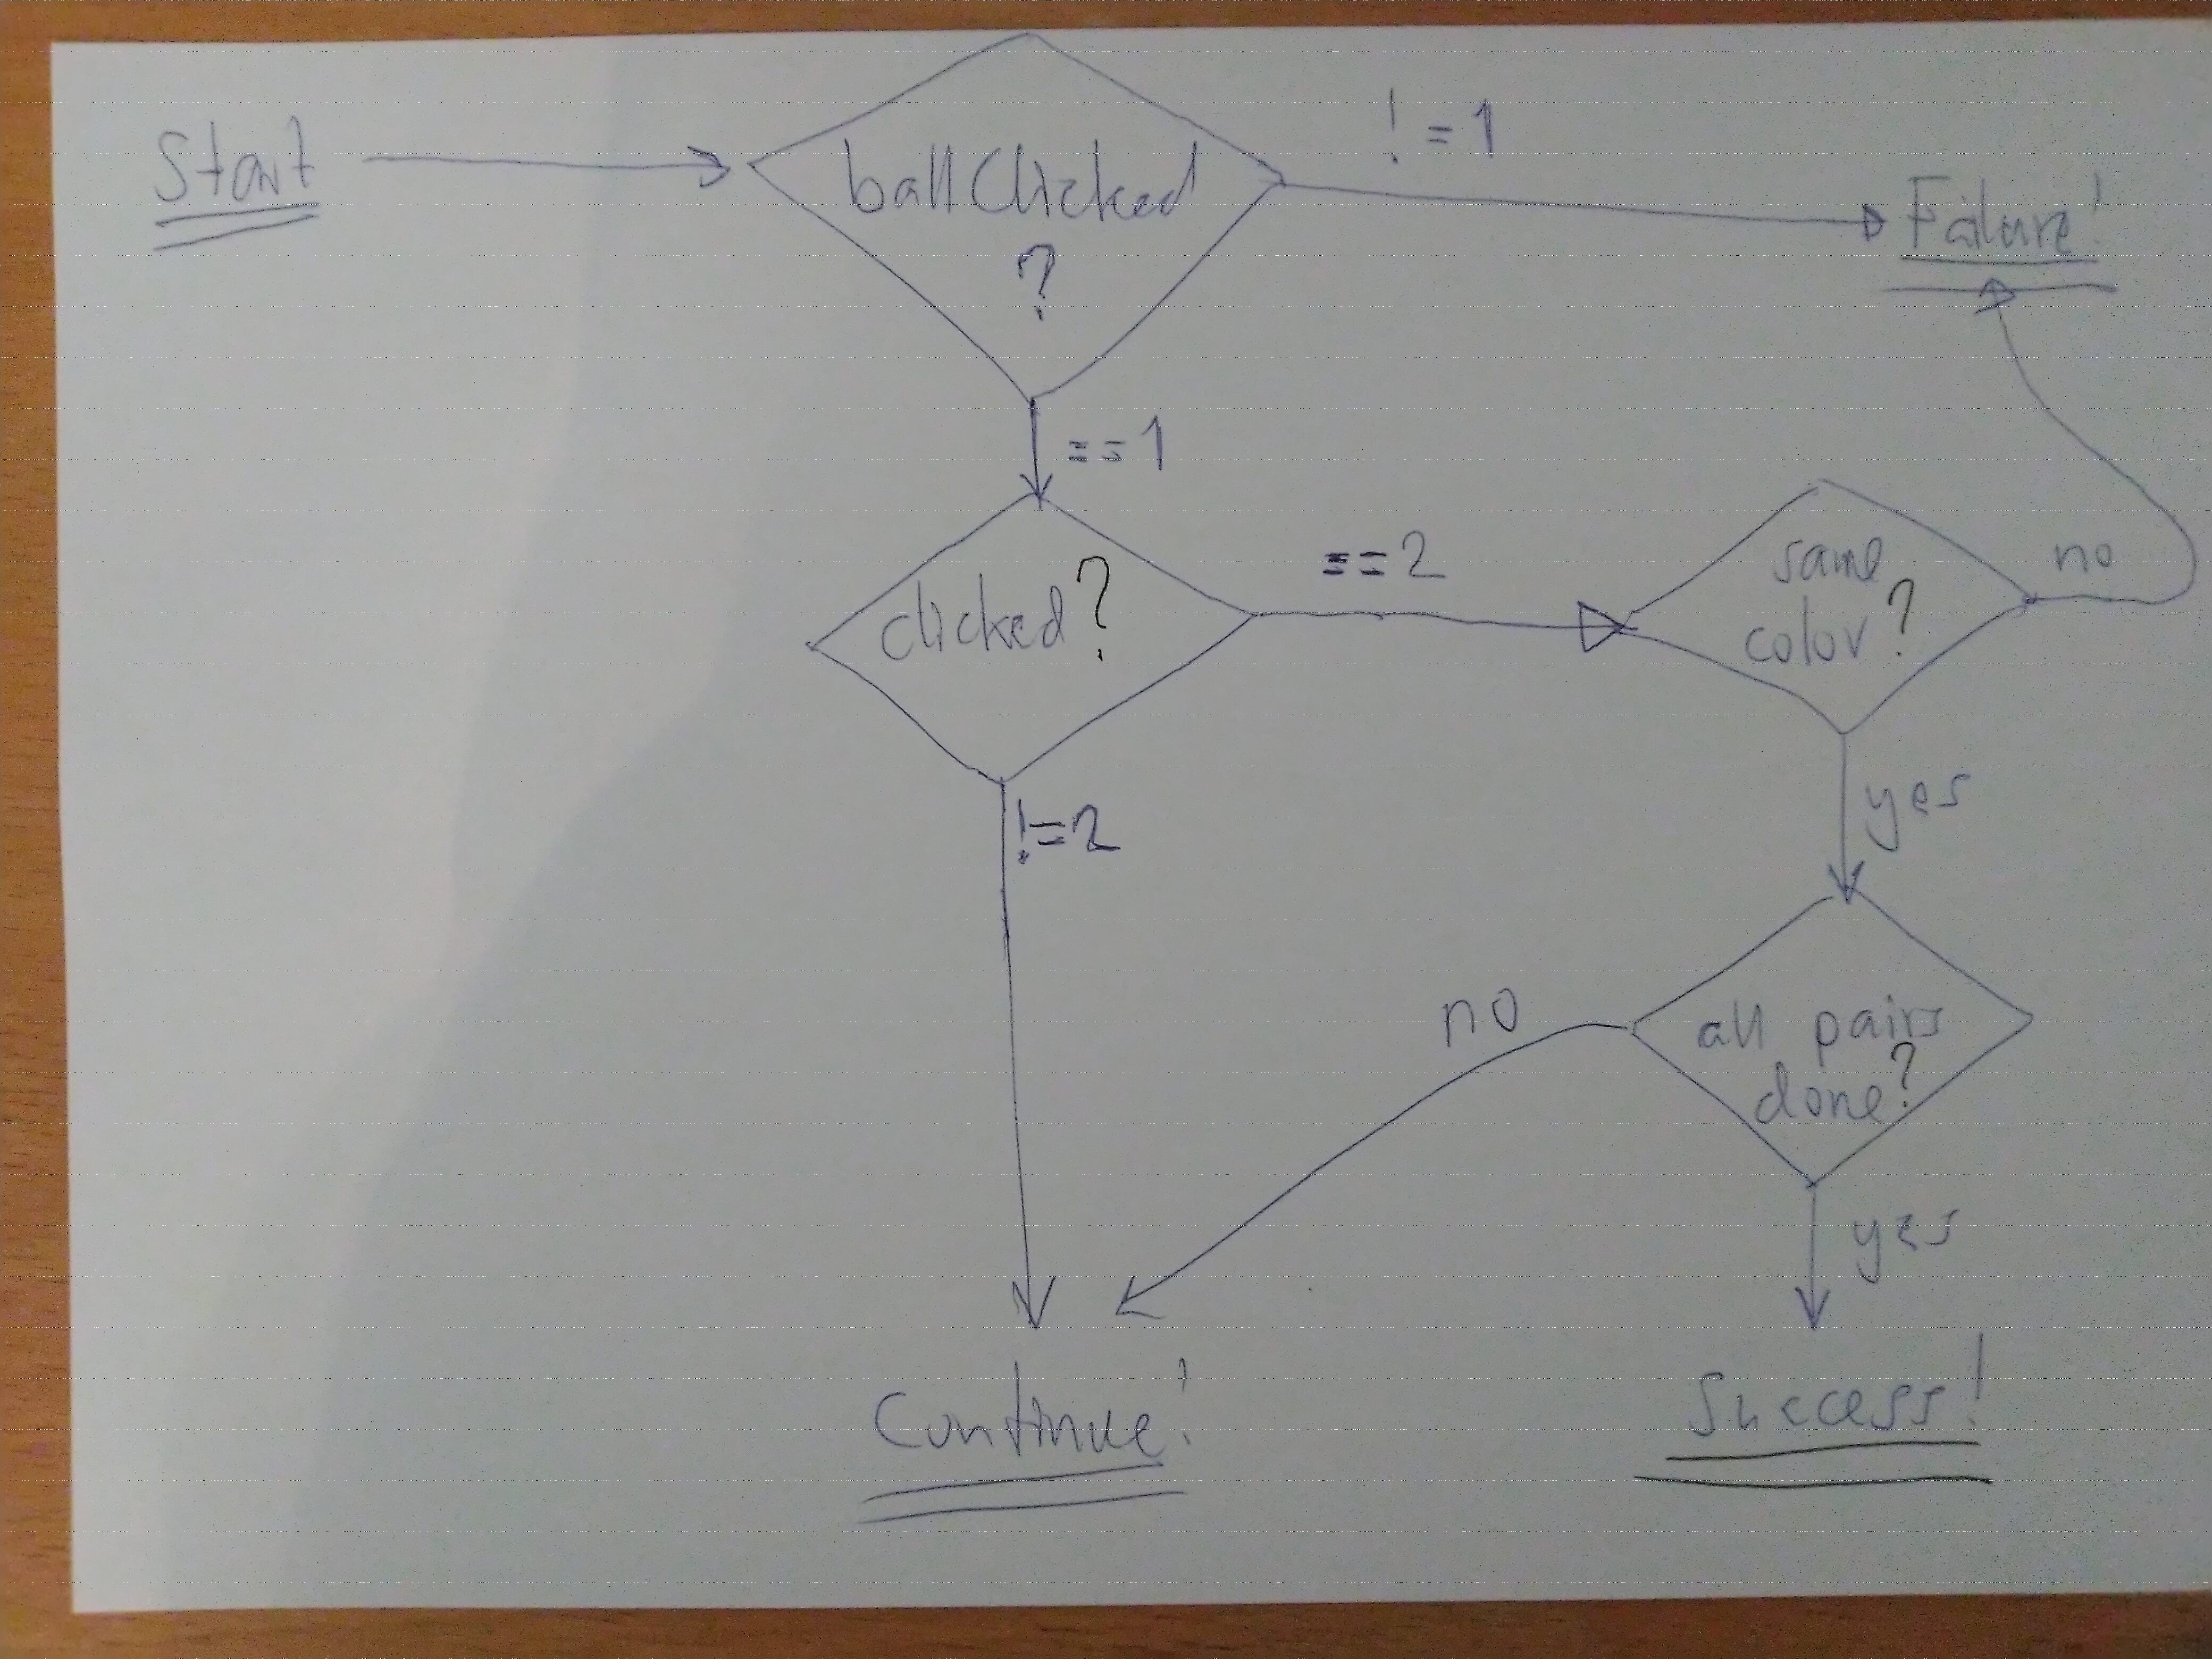 Start
ballClicked
?
!=1
Failure!
==1
clicked?
==2
same
color?
no
!=2
yes
no
all pairs
done?
yes
Continue!
Success!